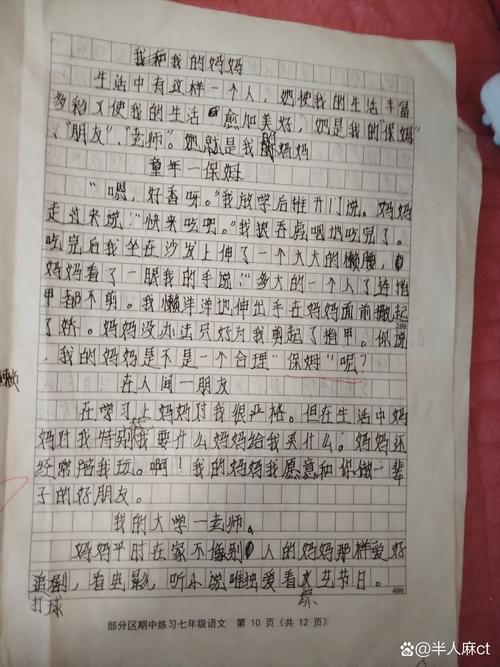 我和我的妈妈
生活中有这样一个人，她使我的生活丰富
多彩又使我的生活愈加美好，她是我的“保姆”
、“朋友”、“老师”。她就是我的妈妈
童年—保姆
“嗯，好香呀。”我放学后推开门说。妈妈
走过来说：“快来吃吧。”我狼吞虎咽地吃完了。
吃完后我坐在沙发上伸了一个大大的懒腰，
妈妈看了一眼我的手说：“多大的一个人了连指
甲都不剪。我懒洋洋地伸出手在妈妈面前撒起
了娇。妈妈没办法只好为我剪起了指甲。你说
，我的妈妈是不是一个合理“保姆”呢？
200
在人间—朋友
在学习上妈妈对我很严格。但在生活中妈
妈对我特好我要什么妈妈给我买什么；妈妈还
经常陪我玩。啊！我的妈妈我愿意和你做一辈
子的好朋友。
我的大学—老师
妈妈平时在家不像别人的妈妈那样爱好
追剧，看电影，听小说唯独爱看文艺节目。
400
打球
综
部分区期中练习七年级语文 第 10 页（共 12 页）
半人麻ct